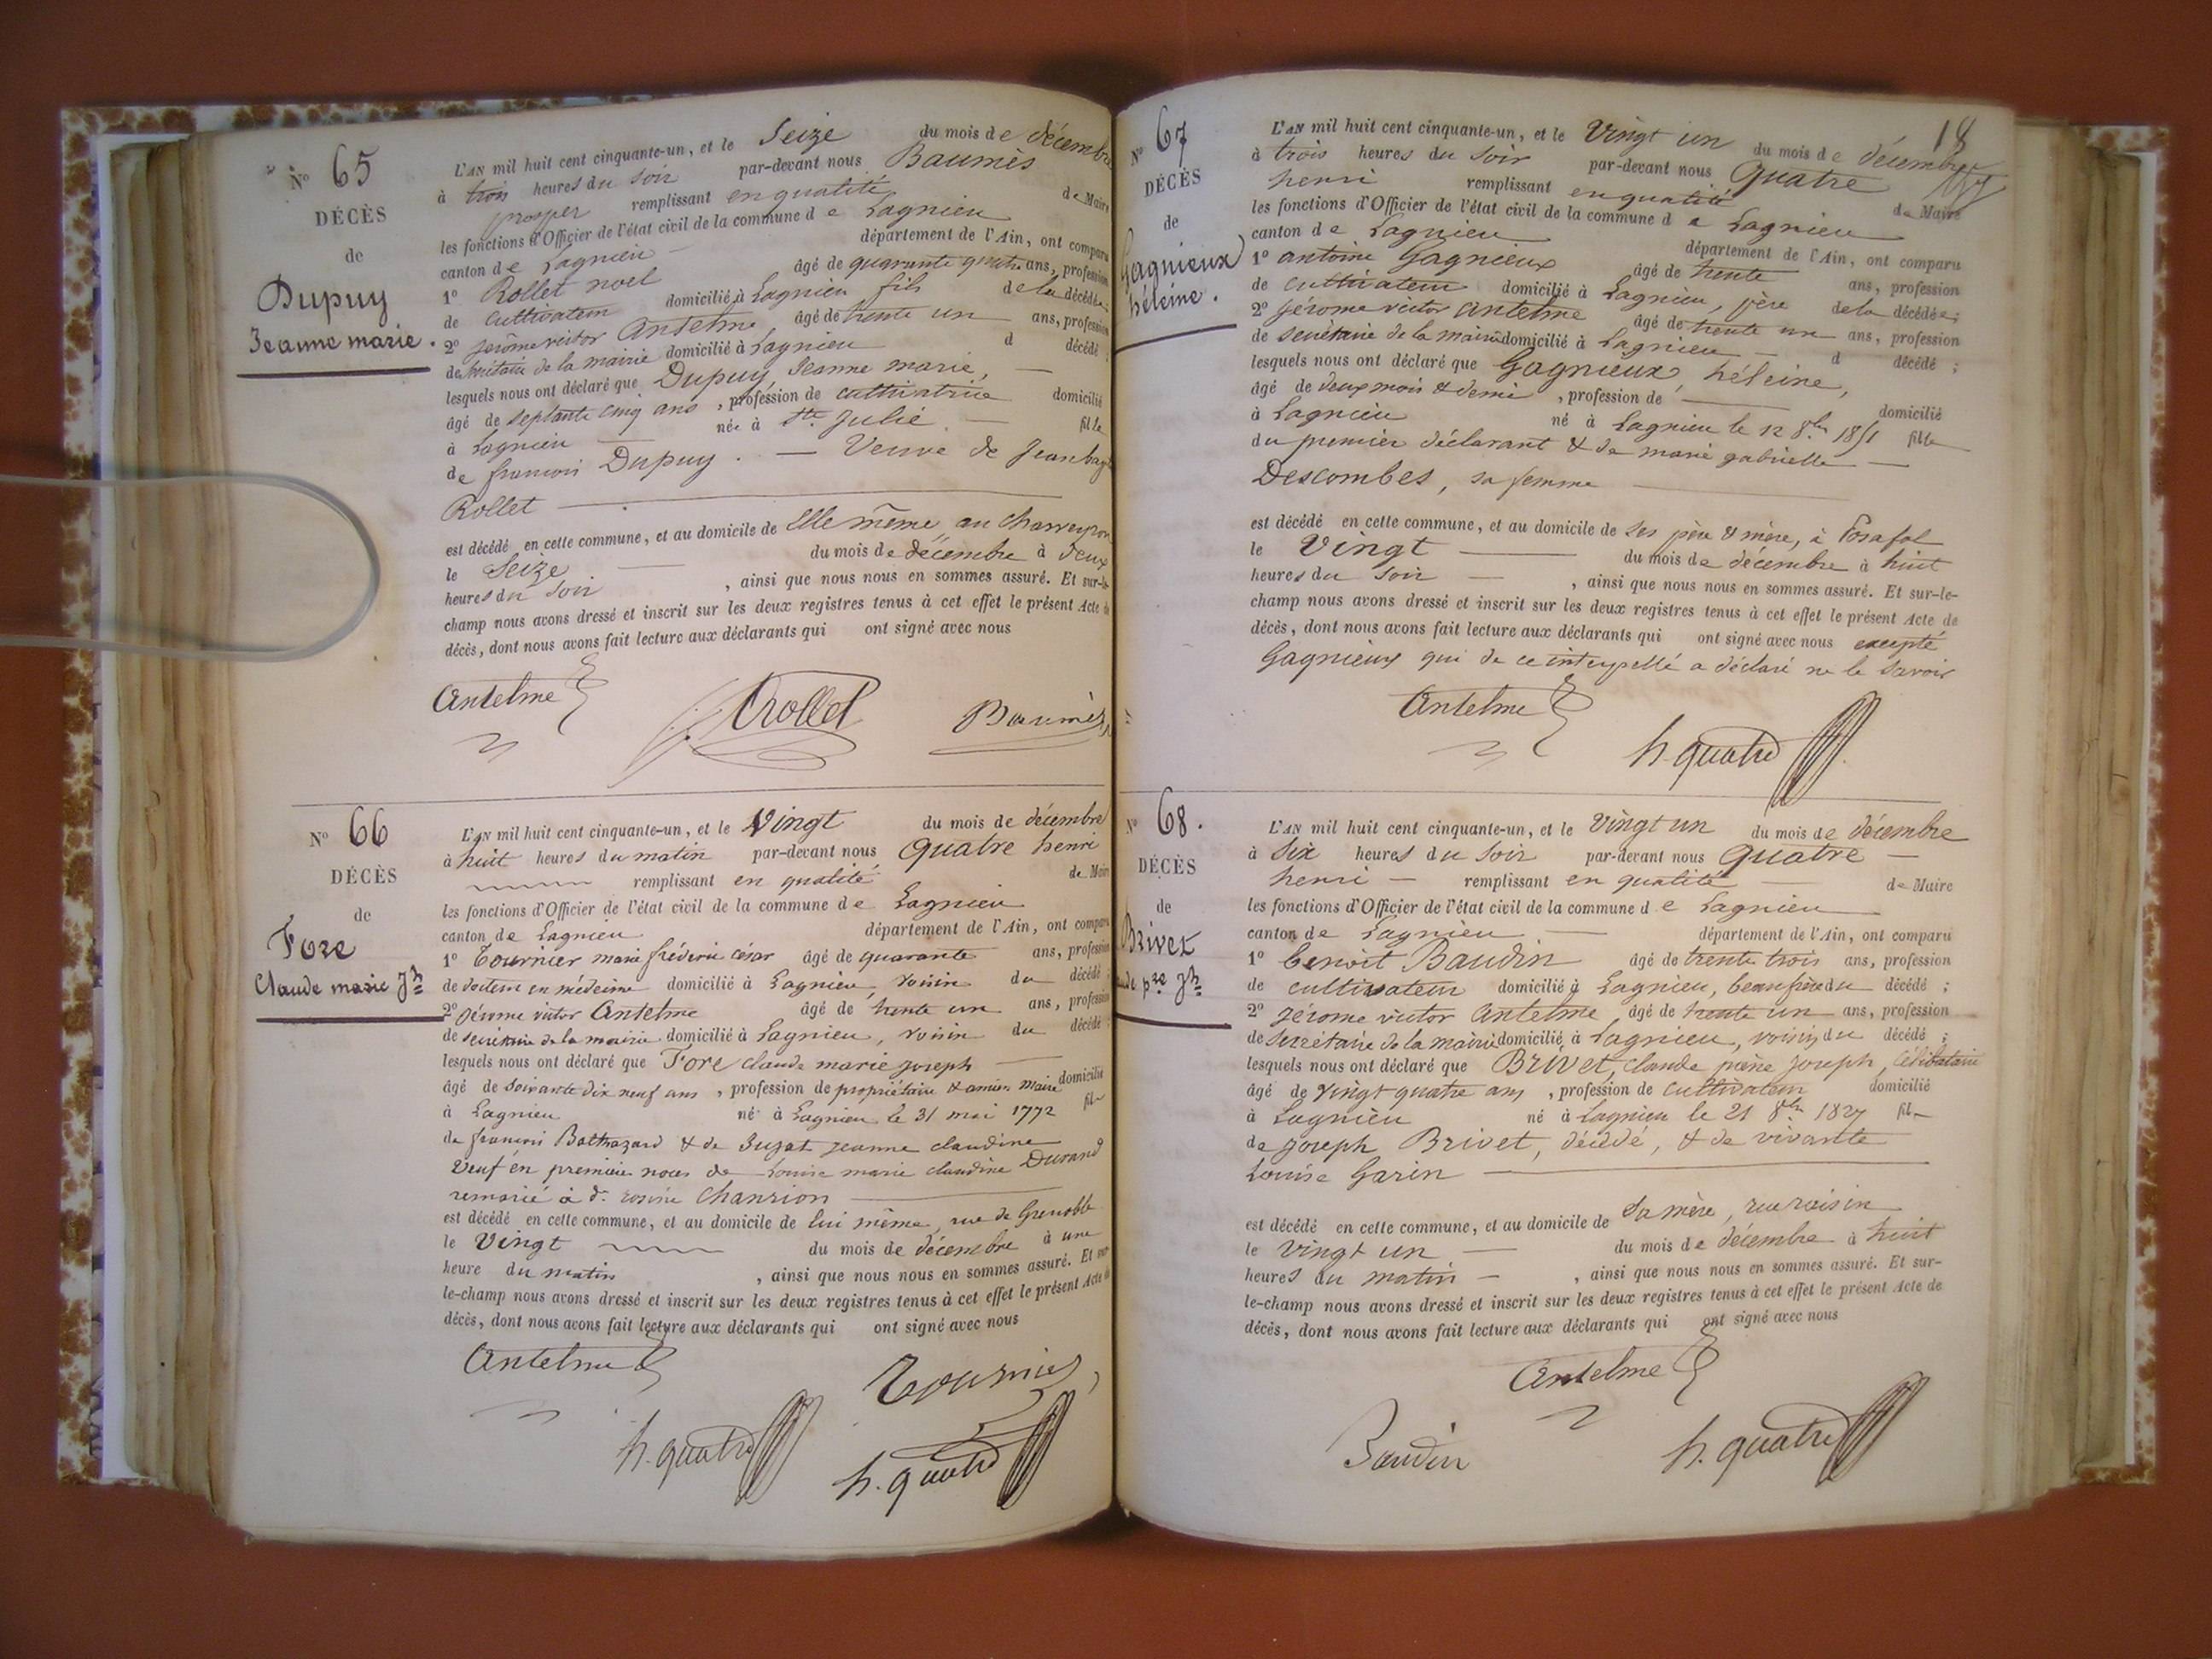 N° 65
DÉCÈS
de
Dupuy
Jeanne marie.
L'AN mil huit cent cinquante-un, et le Seize du mois de décembre
à trois heures du soir par-devant nous Baumès
prosper remplissant en qualité de Maire
les fonctions d'Officier de l'état civil de la commune de Lagnieu
canton de Lagnieu département de l'Ain, ont comparu
1° Rollet noel âgé de quarante quatre ans, profession
de cultivateur domicilié à Lagnieu fils de la décédée;
2° jérôme victor Antelme, âgé de trente un ans, profession
de secrétaire de la mairie domicilié à Lagnieu d décédé;
lesquels nous ont déclaré que Dupuy, Jeanne marie,
âgé de septante cinq ans, profession de cultivatrice domicilié
à Lagnieu née à Ste Julie fille
de françois Dupuy. — Veuve de Jean bap
Rollet
est décédé en cette commune, et au domicile de Elle même au
le Seize du mois de décembre à deux
heures du soir, ainsi que nous nous en sommes assuré. Et sur-le-
champ nous avons dressé et inscrit sur les deux registres tenus à cet effet le présent Acte de
décès, dont nous avons fait lecture aux déclarants qui ont signé avec nous
Antelme Rollet Baumès
N° 66
DÉCÈS
de
Fore
Claude marie Jh
L'AN mil huit cent cinquante-un, et le Vingt du mois de décembre
à huit heures du matin par-devant nous Quatre henri
remplissant en qualité de Maire
les fonctions d'Officier de l'état civil de la commune de Lagnieu
canton de Lagnieu département de l'Ain, ont comparu
1° Tournier marie fréderic césar âgé de quarante ans, profession
de docteur en médecine domicilié à Lagnieu, voisin du décédé;
2° jérome victor Antelme âgé de trente un ans, profession
de secrétaire de la mairie domicilié à Lagnieu, voisin du décédé;
lesquels nous ont déclaré que Fore claude marie joseph
âgé de soixante dix neuf ans, profession de propriétaire & ancien maire domicilié
à Lagnieu né à Lagnieu le 31 mai 1772 fils
de françois Balthazard & de Suzat jeanne claudine
Veuf en première noces de Louise marie claudine Durand
remarié à de rosine Chanrion
est décédé en cette commune, et au domicile de lui même, rue de Grenoble
le Vingt du mois de décembre à une
heure du matin, ainsi que nous nous en sommes assuré. Et sur-
le-champ nous avons dressé et inscrit sur les deux registres tenus à cet effet le présent Acte de
décès, dont nous avons fait lecture aux déclarants qui ont signé avec nous
Antelme Tournier
h. quatre h. quatre
18
N° 67
DÉCÈS
de
Gagnieux
héleine.
L'AN mil huit cent cinquante-un, et le Vingt un du mois de décembre
à trois heures du soir par-devant nous Quatre
henri remplissant en qualité de Maire
les fonctions d'Officier de l'état civil de la commune de Lagnieu
canton de Lagnieu département de l'Ain, ont comparu
1° antoine Gagnieux âgé de trente ans, profession
de cultivateur domicilié à Lagnieu, père de la décédée;
2° jérome victor antelme âgé de trente un ans, profession
de secrétaire de la mairie domicilié à Lagnieu d décédé;
lesquels nous ont déclaré que Gagnieux, héleine,
âgé de deux mois & demi, profession de domicilié
à Lagnieu né à Lagnieu le 12 8bre 1851 fille
du premier déclarant & de marie gabrielle
Descombes, sa femme
est décédé en cette commune, et au domicile de ses père & mère, à Posafol
le Vingt du mois de décembre à huit
heures du soir, ainsi que nous nous en sommes assuré. Et sur-le-
champ nous avons dressé et inscrit sur les deux registres tenus à cet effet le présent Acte de
décès, dont nous avons fait lecture aux déclarants qui ont signé avec nous excepté
Gagnieux qui de ce interpellé a déclaré ne le savoir
Antelme
h. quatre
N° 68.
DÉCÈS
de
Brivet
pre Jh
L'AN mil huit cent cinquante-un, et le Vingt un du mois de décembre
à Six heures du soir par-devant nous Quatre
henri remplissant en qualité de Maire
les fonctions d'Officier de l'état civil de la commune de Lagnieu
canton de Lagnieu département de l'Ain, ont comparu
1° benoit Baudin âgé de trente trois ans, profession
de cultivateur domicilié à Lagnieu, beau frère du décédé;
2° jérome victor antelme âgé de trente un ans, profession
de Secrétaire de la mairie domicilié à Lagnieu, voisin du décédé;
lesquels nous ont déclaré que Brivet, claude pierre joseph, célibataire
âgé de vingt quatre ans, profession de cultivateur domicilié
à Lagnieu né à Lagnieu le 21 8bre 1827 fils
de joseph Brivet, décédé, & de vivante
Louise Garin
est décédé en cette commune, et au domicile de Sa mère, rue raisin
le vingt un du mois de décembre à huit
heures du matin, ainsi que nous nous en sommes assuré. Et sur-
le-champ nous avons dressé et inscrit sur les deux registres tenus à cet effet le présent Acte de
décès, dont nous avons fait lecture aux déclarants qui ont signé avec nous
Antelme
Baudin h. quatre